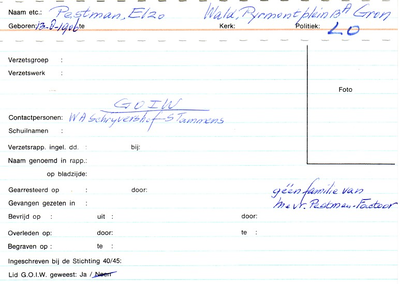 Naam etc.: Pestman, Elzo Wald. Pyrmontplein 13A Gron
Geboren: 13-8-1906 te Kerk: Politiek: LO
Verzetsgroep :
Verzetswerk :
Foto
G O I W
Contactpersonen: WA Schryvershof - S Tammens
Schuilnaam :
Verzetsrapp. ingel. dd. : bij:
Naam genoemd in rapp.:
op bladzijde:
Gearresteerd op : door:
géén familie van
Gevangen gezeten in :
Mevr. Pestman-Factoor
Bevrijd op : uit : door:
Overleden op : door: te :
Begraven op : te :
Ingeschreven bij de Stichting 40/45:
Lid G.O.I.W. geweest: Ja / Neen